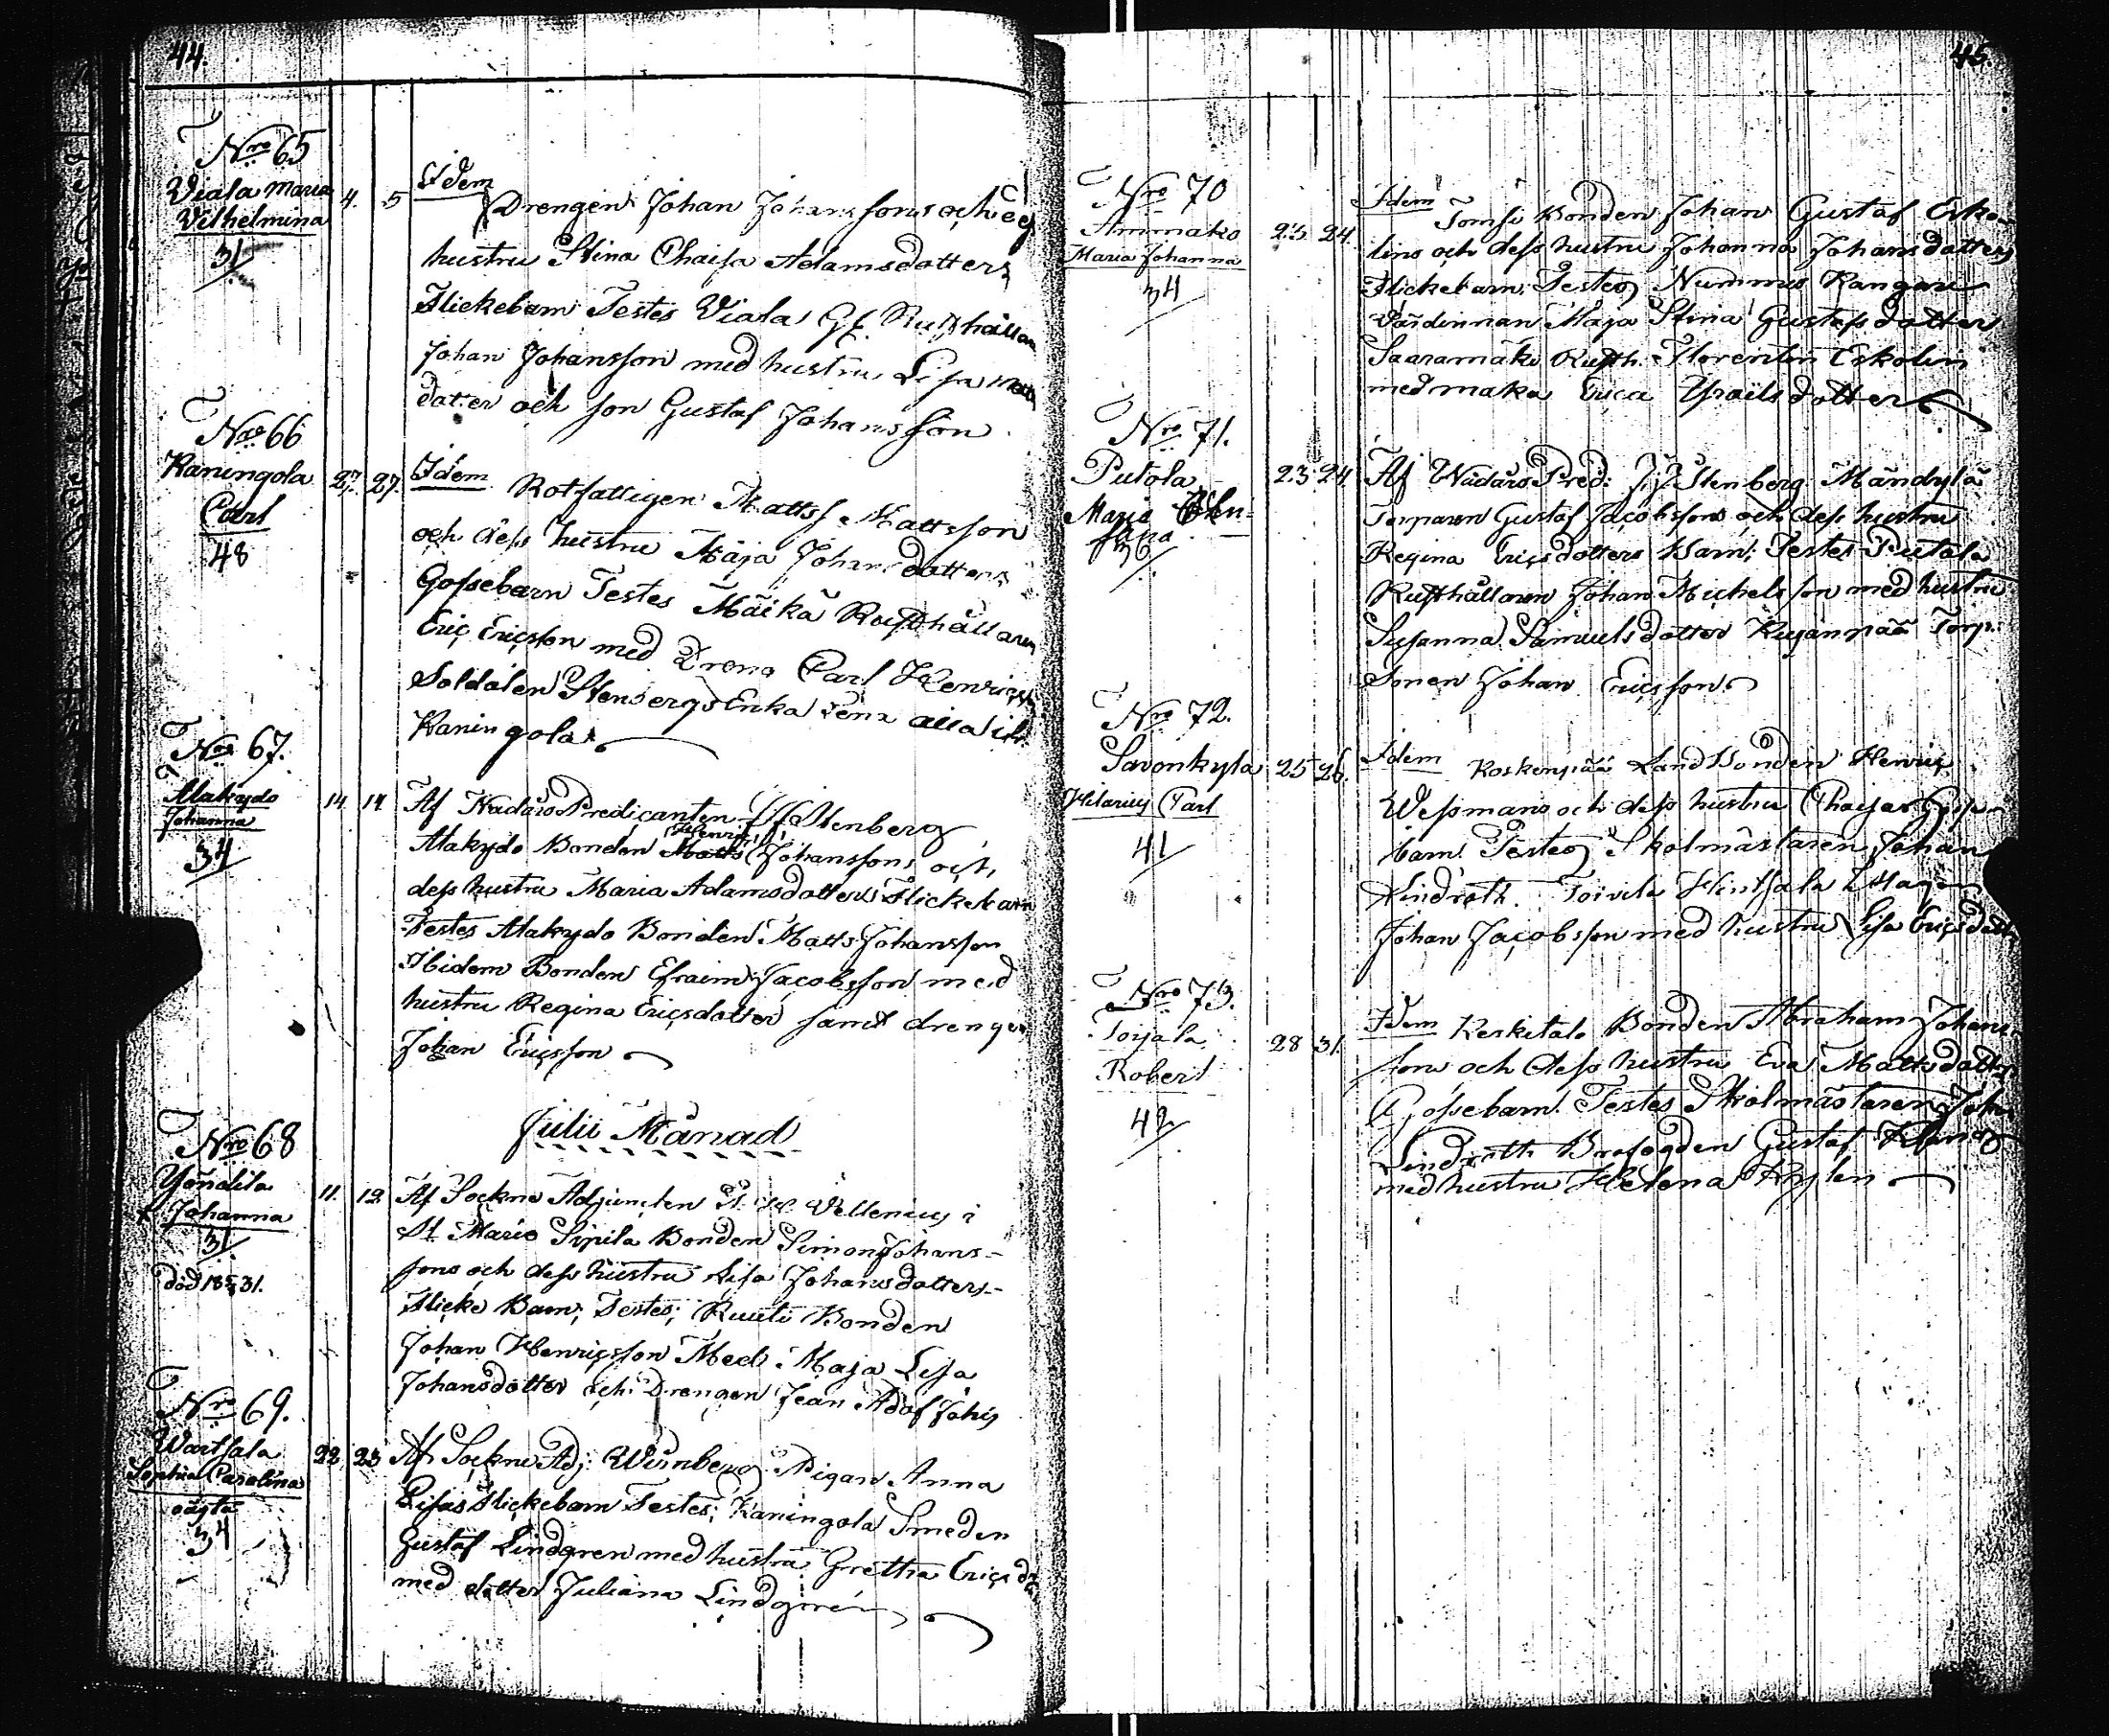 44.
Nro 65
Viala Maria
Wilhelmina
31/
4. 5
Idem
Drengen Johan Johanssons och
hustru Stina Chaisa Adamsdotters
Flickebarn Testes Viala Gl. Rusthållaren
Johan Johansson med hustru Lisa
dotter och son Gustaf Johansson
Nro 66
Kaningola
Carl
48
27. 27.
Idem Rotfattigen Matts Mattsson
och dess hustru Maja Johansdotters
Gossebarn Testes Mäikä Rusthållaren
Eric Ericsson med Dreng Carl Henricss
Soldaten Stenbergs Enka Lena alla ifr.
Kaningola
Nro 67.
Alakydo
Johanna
34
14 14
Af Nådårs Predicanten Stenberg
Henric
Alakydo Bonden Matts Johanssons och
dess hustru Maria Adamsdotters Flickebarn
Testes Alakydo Bonden Matts Johansson
Ibidem Bonden Efraim Jacobsson med
hustru Regina Ericsdotter samt drengen
Johan Ericsson
Julii Månad
Nro 68
Yöndilä
Johanna
31
död 31.
11. 12
Af Sockne Adjuncten Vellenius i
St Mårie Sipilä Bonden Simon Johans-
sons och dess hustru Lisa Johansdotters-
Flicke Barn; Testes; Ruuti Bonden
Johan Henricsson Med Maja Lisa
Johansdotter och Drengen Jean Adolf Johis
Nro 69.
Wartsala
Sophia Carolina
oägta
34
22 23
Af Sockne Adj: Winnberg Pigan Anna
Lisas Flickebarn Testes; Kaningola Smeden
Gustaf Lindgren med hustru Gretha Erics dr
med dotter Juliana Lindgren
45.
Nro 70
Ammako
Maria Johanna
34
23 24.
Idem Tomsi Bonden Johan Gustaf Esko-
lins och dess hustru Johanna Johansdotters
Flickebarn; Testes Nummis Kangari
Värdinnan Maja Stina Gustafsdotter
Saaramäki Rusth. Florentin Eskolin
med maka Erica Ysraelsdotter
Nro 71.
Putola
Maria
36
23. 24.
Af Nådårs Pred: Stenberg Mändylä
Torparen Gustaf Jacobssons och dess hustru
Regina Ericsdotters Barn; Testes Putola
Rusthållaren Johan Michelsson med hustru
Susanna Samuelsdotter Kujanpää Torp.
Sonen Johan Ericsson
Nro 72.
Savonkylä
Hilarius Carl
41
25 26.
Idem Koskenpää LandBonden Henric
Wessmans och dess hustru Chaisas Gosse
barn Testes Skolmästaren Johan
Lindroth. Toivila Hintsala
Johan Jacobsson med hustru Lisa Ericsdott
Nro 73.
Torjala
Robert
42
28 31.
Idem Keskitalo Bonden Abraham Johans-
sons och dess hustru Eva Mattsdotters
Gossebarn. Testes Skolmästaren Joh
Lindroth Brofogden Gustaf
med hustru Helena Nylen